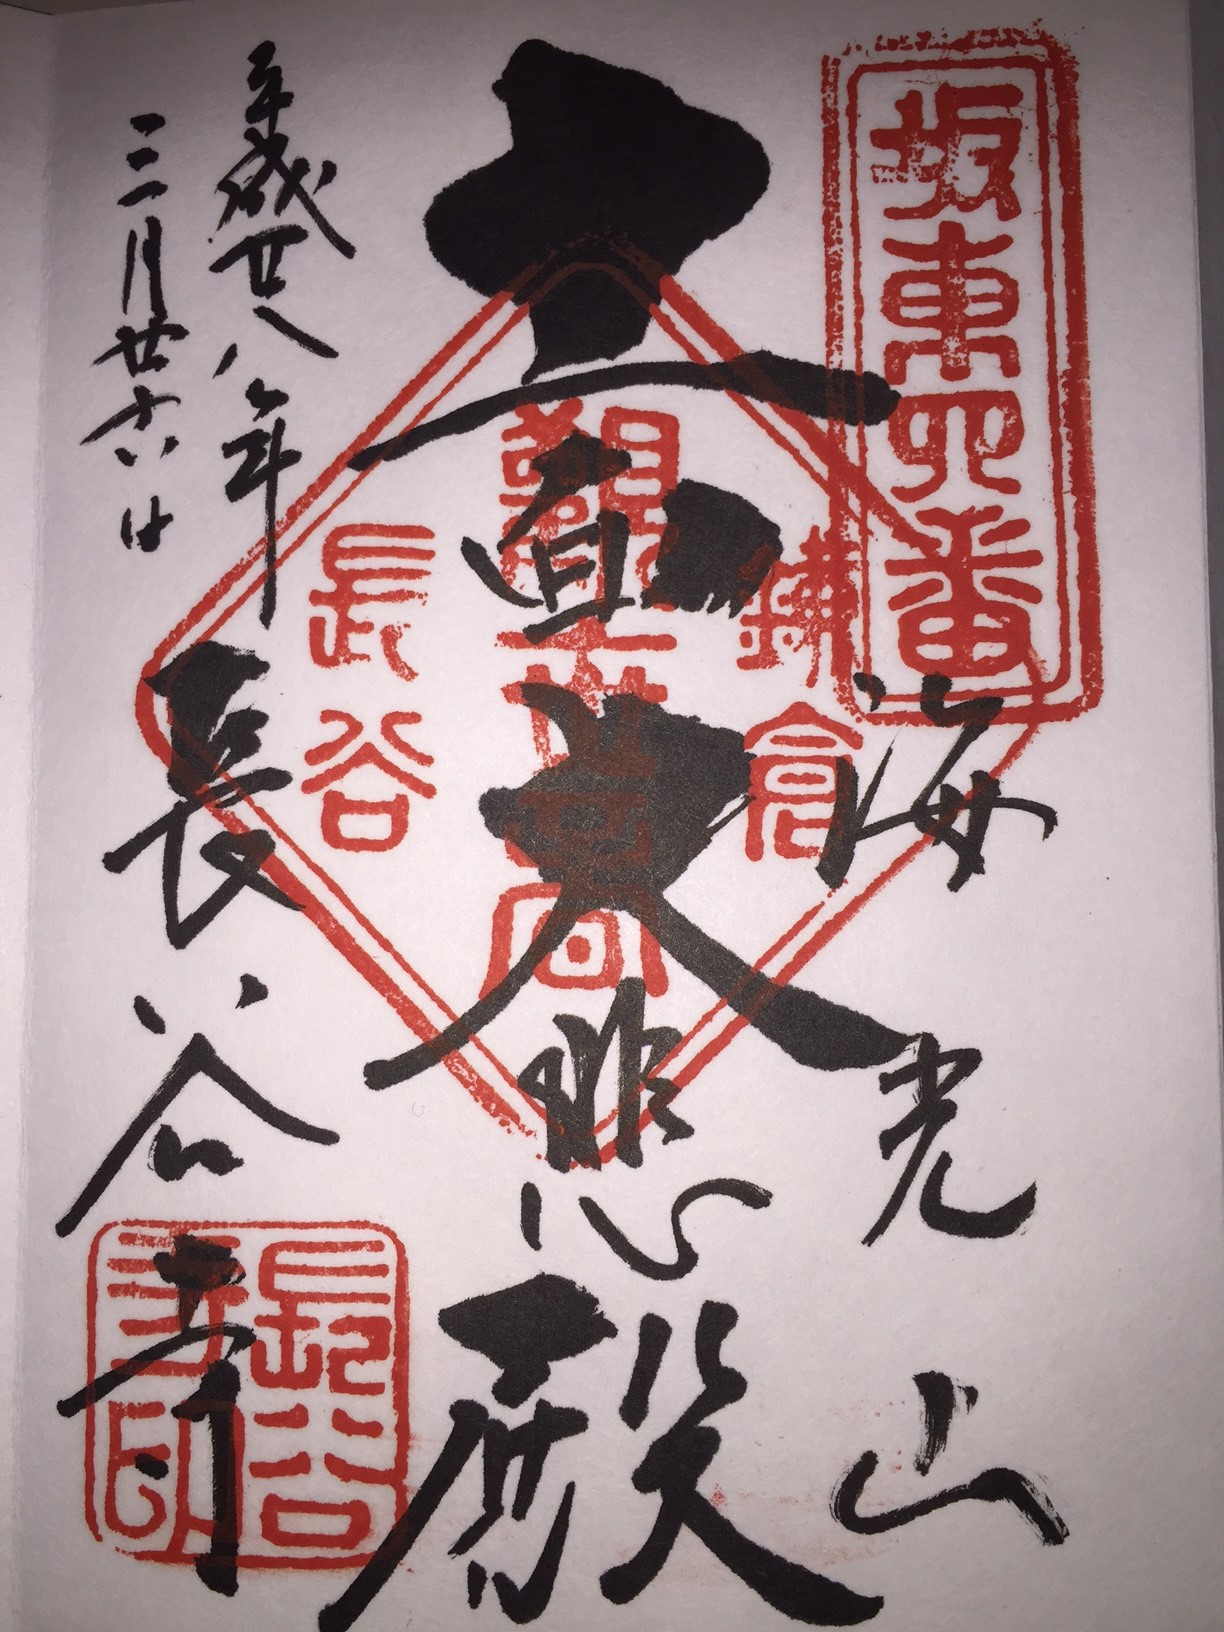 坂東四番
海光山
鎌倉
十一面大悲殿
長谷
平成廿八年
三月廿六日
長谷寺
長谷
寺印